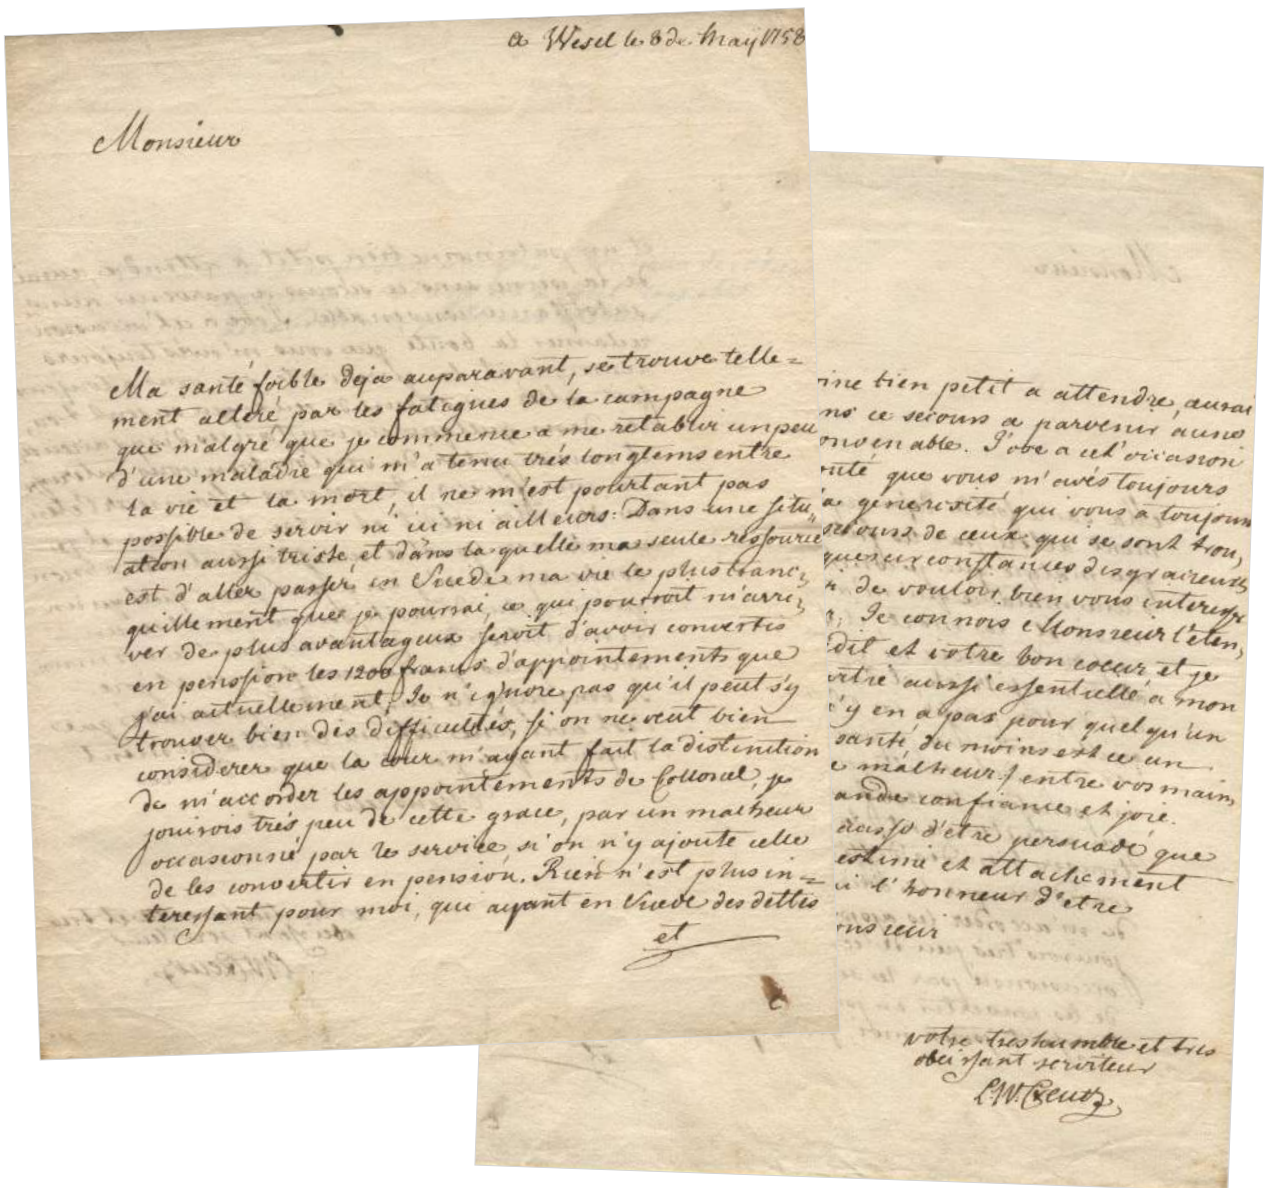 a Wesel le 8 de May 1758
Monsieur
Ma santé foible deja auparavant, se trouve telle=
ment alteré par les fatigues de la campagne
que malgré que je commence a me retablir un peu
d'une maladie qui m'a tenu trés longtems entre
la vie et la mort, il ne m'est pourtant pas
possible de servir ni ici ni ailleurs: Dans une situ„
ation aussi triste, et dans la quelle ma seule ressource
est d'aller passer en Suede ma vie le plus tranc„
quillement que je pourrai, ce qui pourroit m'arri„
ver de plus avantageux seroit d'avoir convertis
en pension les 1200 francs d'appointements que
j'ai actuellement. Je n'ignore pas qu'il peut s'y
trouver bien des difficultés, si on ne veut bien
considerer que la cour m'ayant fait la distinction
de m'accorder les appointements de Collonel, je
jouirois trés peu de cette grace, par un malheur
occasionné par le service, si on n'y ajoute celle
de les convertir en pension. Rien n'est plus in=
teressant pour moi, qui ayant en Suede des dettes
et
ine bien petit a attendre, aurai
ns ce secours a parvenir a une
onvenable. J'ose a cet occasion
onté que vous m'avés toujours
a generosité qui vous a toujours
secours de ceux qui se sont trou„
ques circonstances disgracieuses,
r de vouloir bien vous interesser
Je connois Monsieur l'éten„
dit et votre bon coeur, et je
itié aussi essentielle a mon
y en a pas pour quelqu'un
santé, du moins est ce un
e malheur) entre vos mains
ande confiance et joie.
d'etre persuadé que
estime et attachement
i l'honneur d'etre
onsieur
votre tres humble et tres
obeissant serviteur
C.W. Creutz